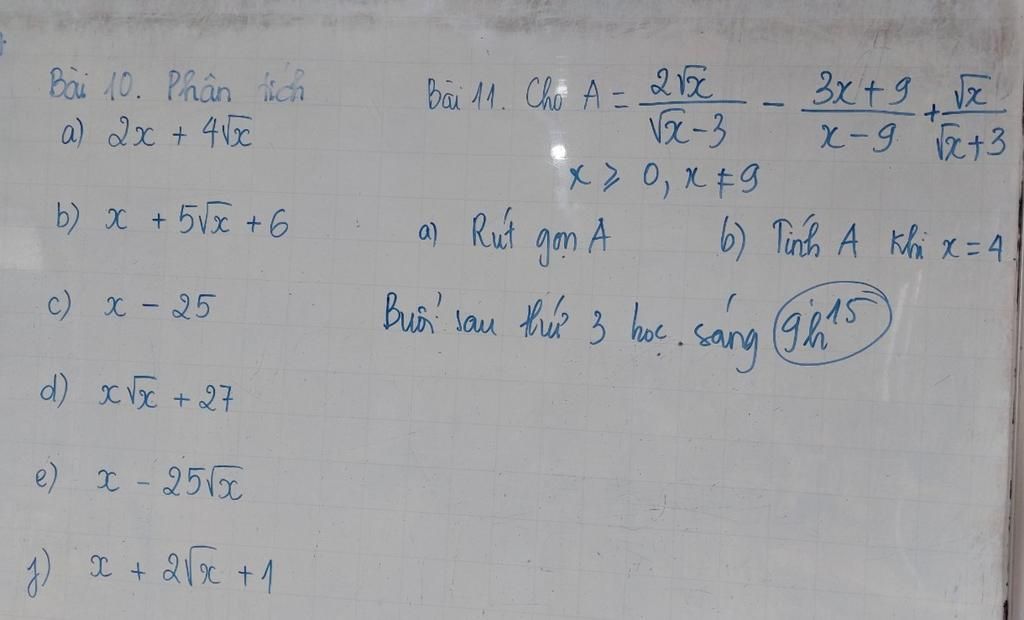 Bài 10. Phân tích
a) 2x + 4√x
b) x + 5√x + 6
c) x - 25
d) x√x + 27
e) x - 25√x
f) x + 2√x + 1
Bài 11. Cho A = 2√x/(√x - 3) - (3x + 9)/(x - 9) + √x/(√x + 3)
x ⩾ 0, x ≠ 9
a) Rút gọn A b) Tính A khi x = 4.
Buổi sau thứ 3 học. sáng 9h15